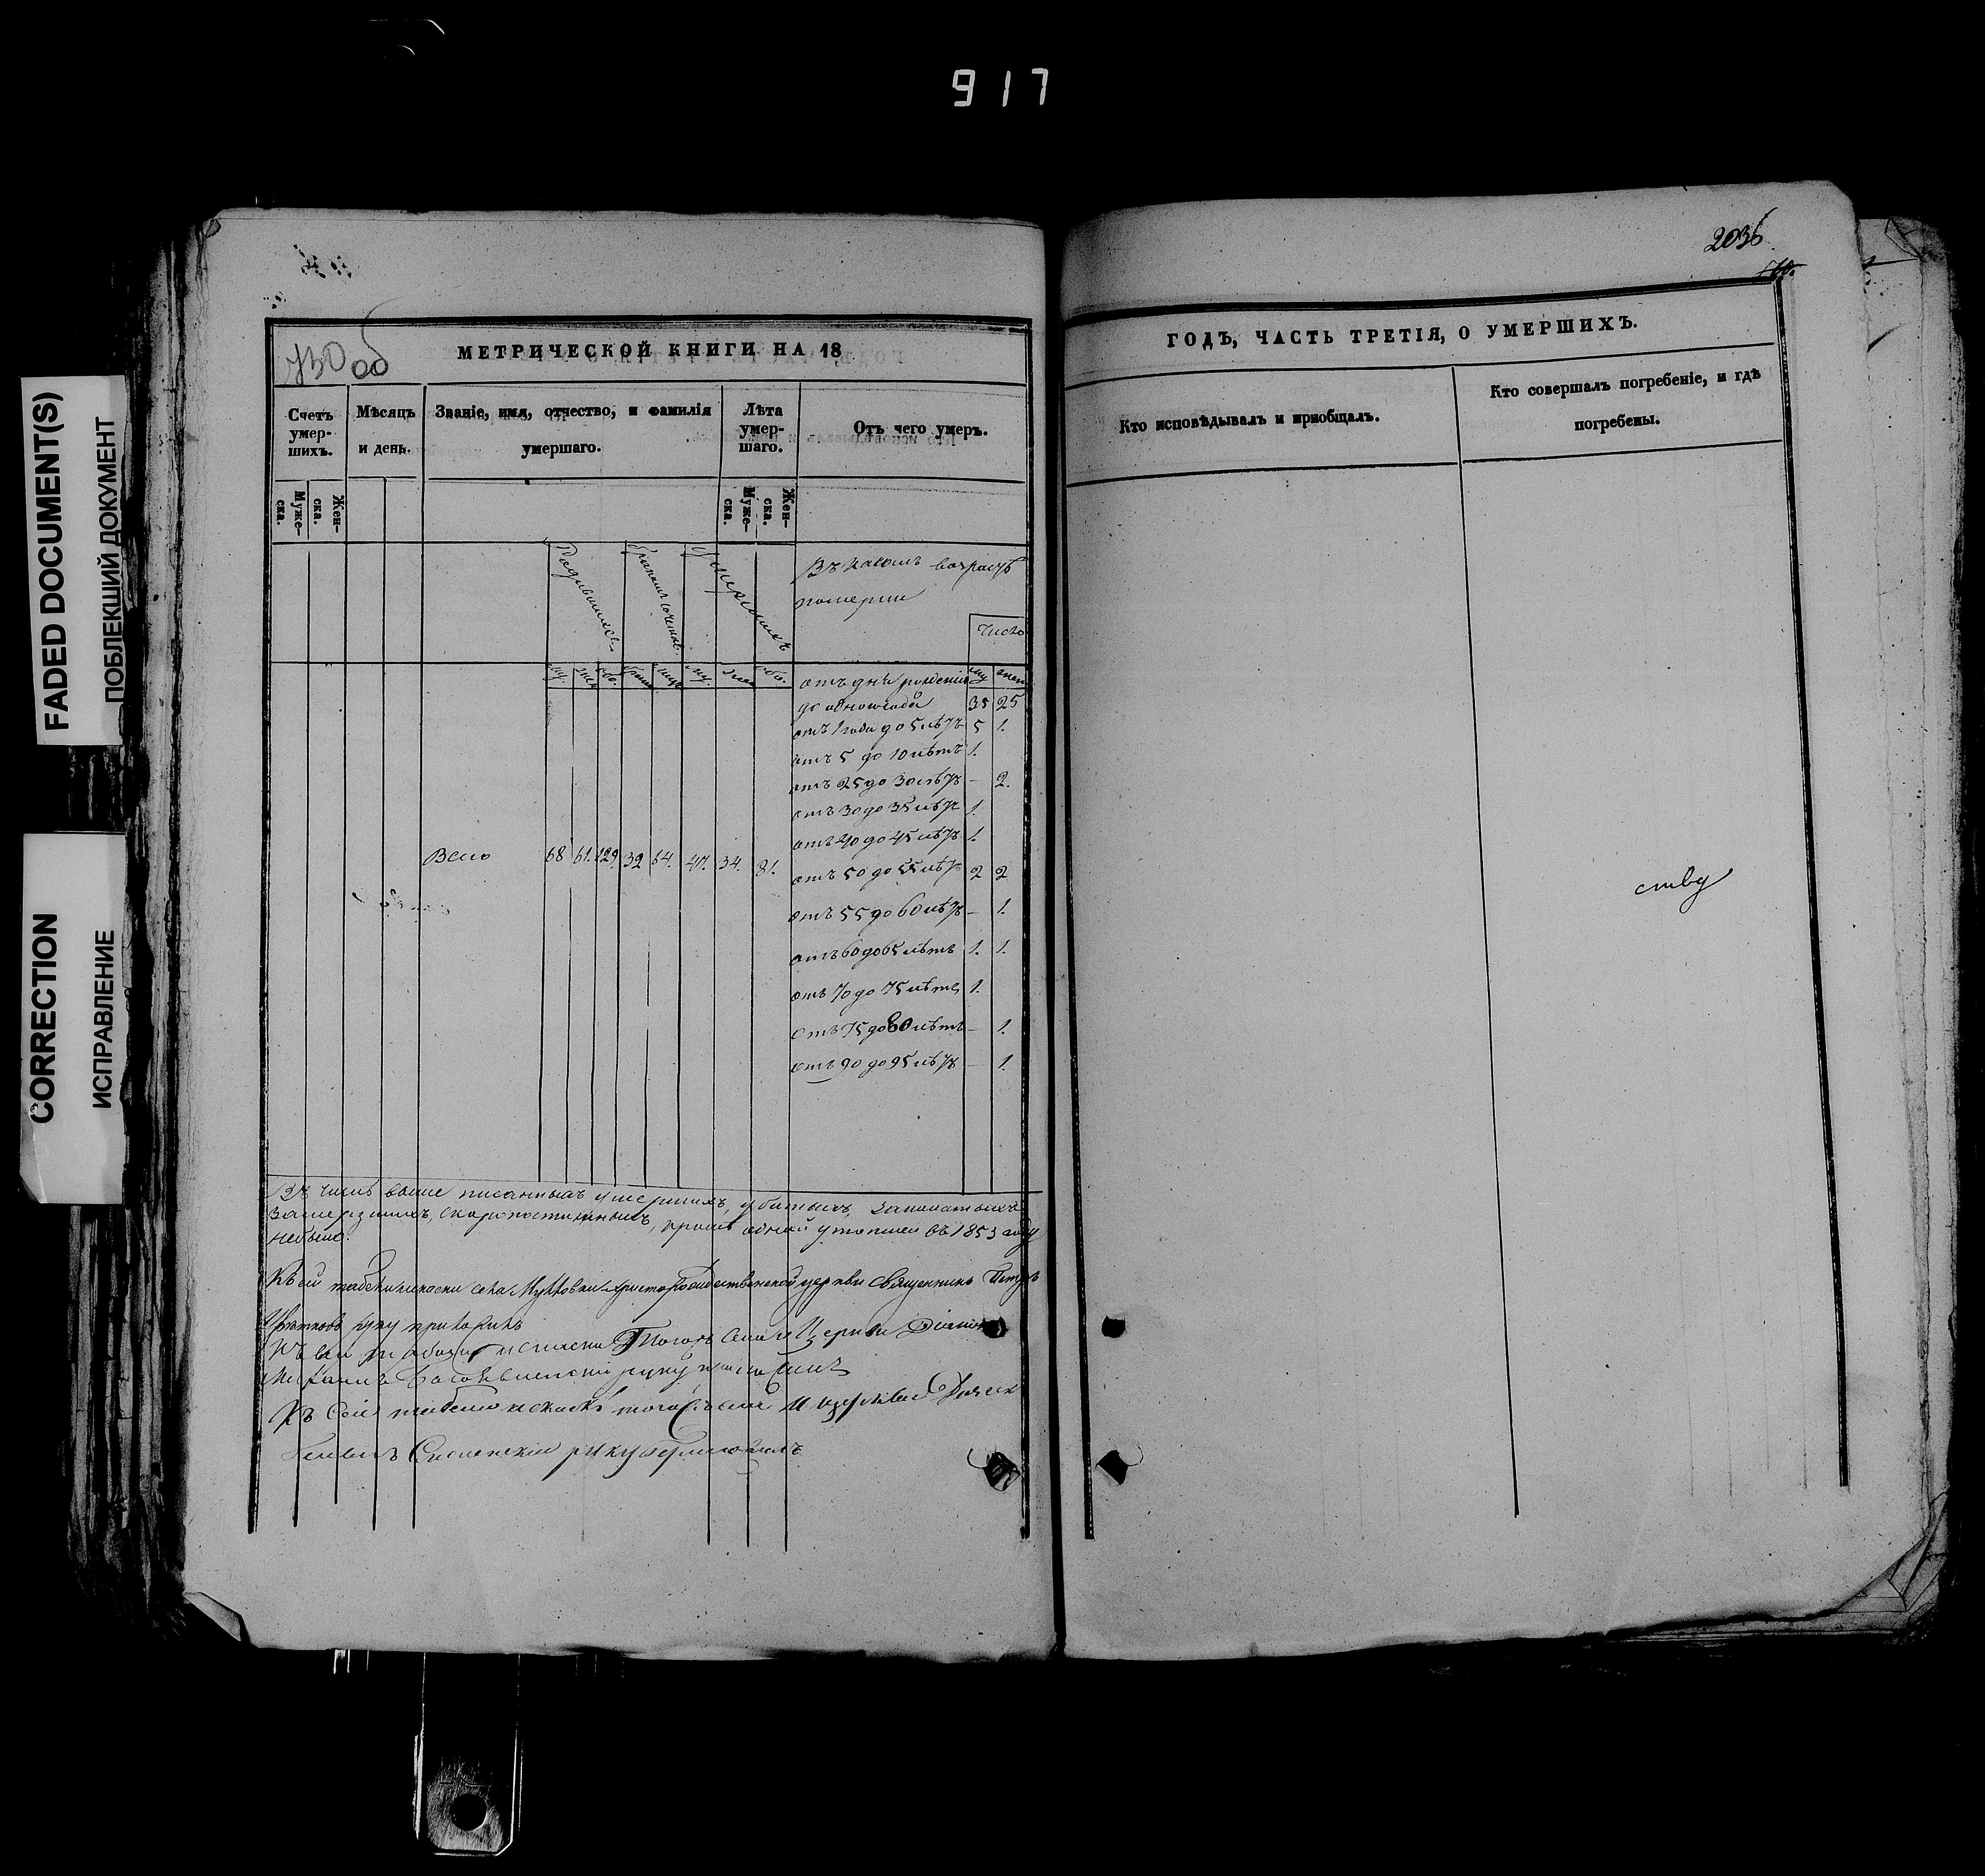 917
FADED DOCUMENT(S)
ПОБЛЕКШИЙ ДОКУМЕНТ
CORRECTION
ИСПРАВЛЕНИЕ
730 об
МЕТРИЧЕСКОЙ КНИГИ НА 18
Счетъ умер-шихъ.
Мѣсяцъ и день.
Званіе, имя, отчество, и фамилія умершаго.
Лѣта умер-шаго.
Отъ чего умеръ.
Муже-ска.
Жен-ска.
Муже-ска.
Жен-ска.
Родившихся
Умершихъ
Въ какомъ возрастѣ
померли
Число
му. жен. обо. му. обо.
отъ дня рожденія му жен
до одного года 35 25
отъ 1 года до 5 лѣтъ 5 1.
отъ 5 до 10 лѣтъ 1.
отъ 25 до 30 лѣтъ – 2.
отъ 30 до 35 лѣтъ 1.
отъ 40 до 45 лѣтъ 1.
Всего 68 61. 129. 32 64. 47. 34. 81.
отъ 50 до 55 лѣтъ 2 2
отъ 55 до 60 лѣтъ – 1.
отъ 60 до 65 лѣтъ 1. 1.
отъ 70 до 75 лѣтъ 1.
отъ 75 до 80 лѣтъ – 1.
отъ 90 до 95 лѣтъ – 1.
Въ числѣ выше писанныхъ умершихъ, убитыхъ,
замерзшихъ, скоропостижныхъ, кромѣ одной утопшей въ 1853 году
небыло.
Къ сей христорождественской церкви священникъ Петръ
руку приложилъ
Къ сей Тогожъ села и Церкви Діаконъ
руку приложилъ
Къ сей того села и церкви Дьячекъ
руку приложилъ
2036
ГОДЪ, ЧАСТЬ ТРЕТІЯ, О УМЕРШИХЪ.
Кто исповѣдывалъ и пріобщалъ.
Кто совершалъ погребеніе, и гдѣ погребены.
ству